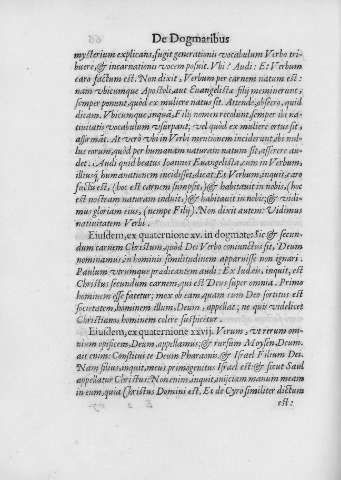 De Dogmatibus
mysterium explicans, fugit generationis vocabulum Verbo tri-
buere, & incarnationis vocem posuit. Vbi? Audi: Et Verbum
caro factum est. Non dixit: Verbum per carnem natum est:
nam vbicumque Apostoli, aut Euangelista filij meminerunt,
semper ponent, quòd ex muliere natus sit. Attende, obsecro, quid
dicam. Vbicumque, inquā, Filij nomen recolunt, semper ibi na-
tiuitatis vocabulum vsurpant, vel quòd ex muliere ortus sit,
affirmāt. At verò vbi in Verbi mentionem inciderunt, ibi nul-
lus eorum, quòd per humanam naturam natum sit, asserere au-
det. Audi quid beatus Ioannes Euangelista, cum in Verbum,
illiusq́; humanationem incidisset, dicat. Et Verbum, inquit, caro
factū est, (hoc est carnem sumpsit,) & habitauit in nobis, (hoc
est nostram naturam induit,) & habitauit in nobis; & vidi-
mus gloriam eius, (nempe Filij.) Non dixit autem: Vidimus
natiuitatem Verbi.
Eiusdem, ex quaternione xv. in dogmate: Sic & secun-
dum carnem Christum, quòd Dei Verbo coniunctus sit, Deum
nominamus, in hominis similitudinem apparuisse non ignari.
Paulum vtrumque prædicantem audi: Ex Iudæis, inquit, est
Christus secundum carnem, qui est Deus super omnia. Primo
hominem esse fatetur; mox ob eam, quam cum Deo sortitus est
societatem, hominem illum, Deum, appellat; ne quis videlicet
Christianus, hominem colere suspicetur.
Eiusdem, ex quaternione xxvij. Verum, vt rerum om-
nium opificem, Deum, appellamus; & rursùm Moysen, Deum,
ait enim: Constitui te Deum Pharaoni: & Israel Filium Dei.
Nam filius, inquit, meus primogenitus Israel est: & sicut Saul
appellatur Christus: Non enim, inquit, inijciam manum meam
in eum, quia Christus Domini est. Et de Cyro similiter dictum
est: